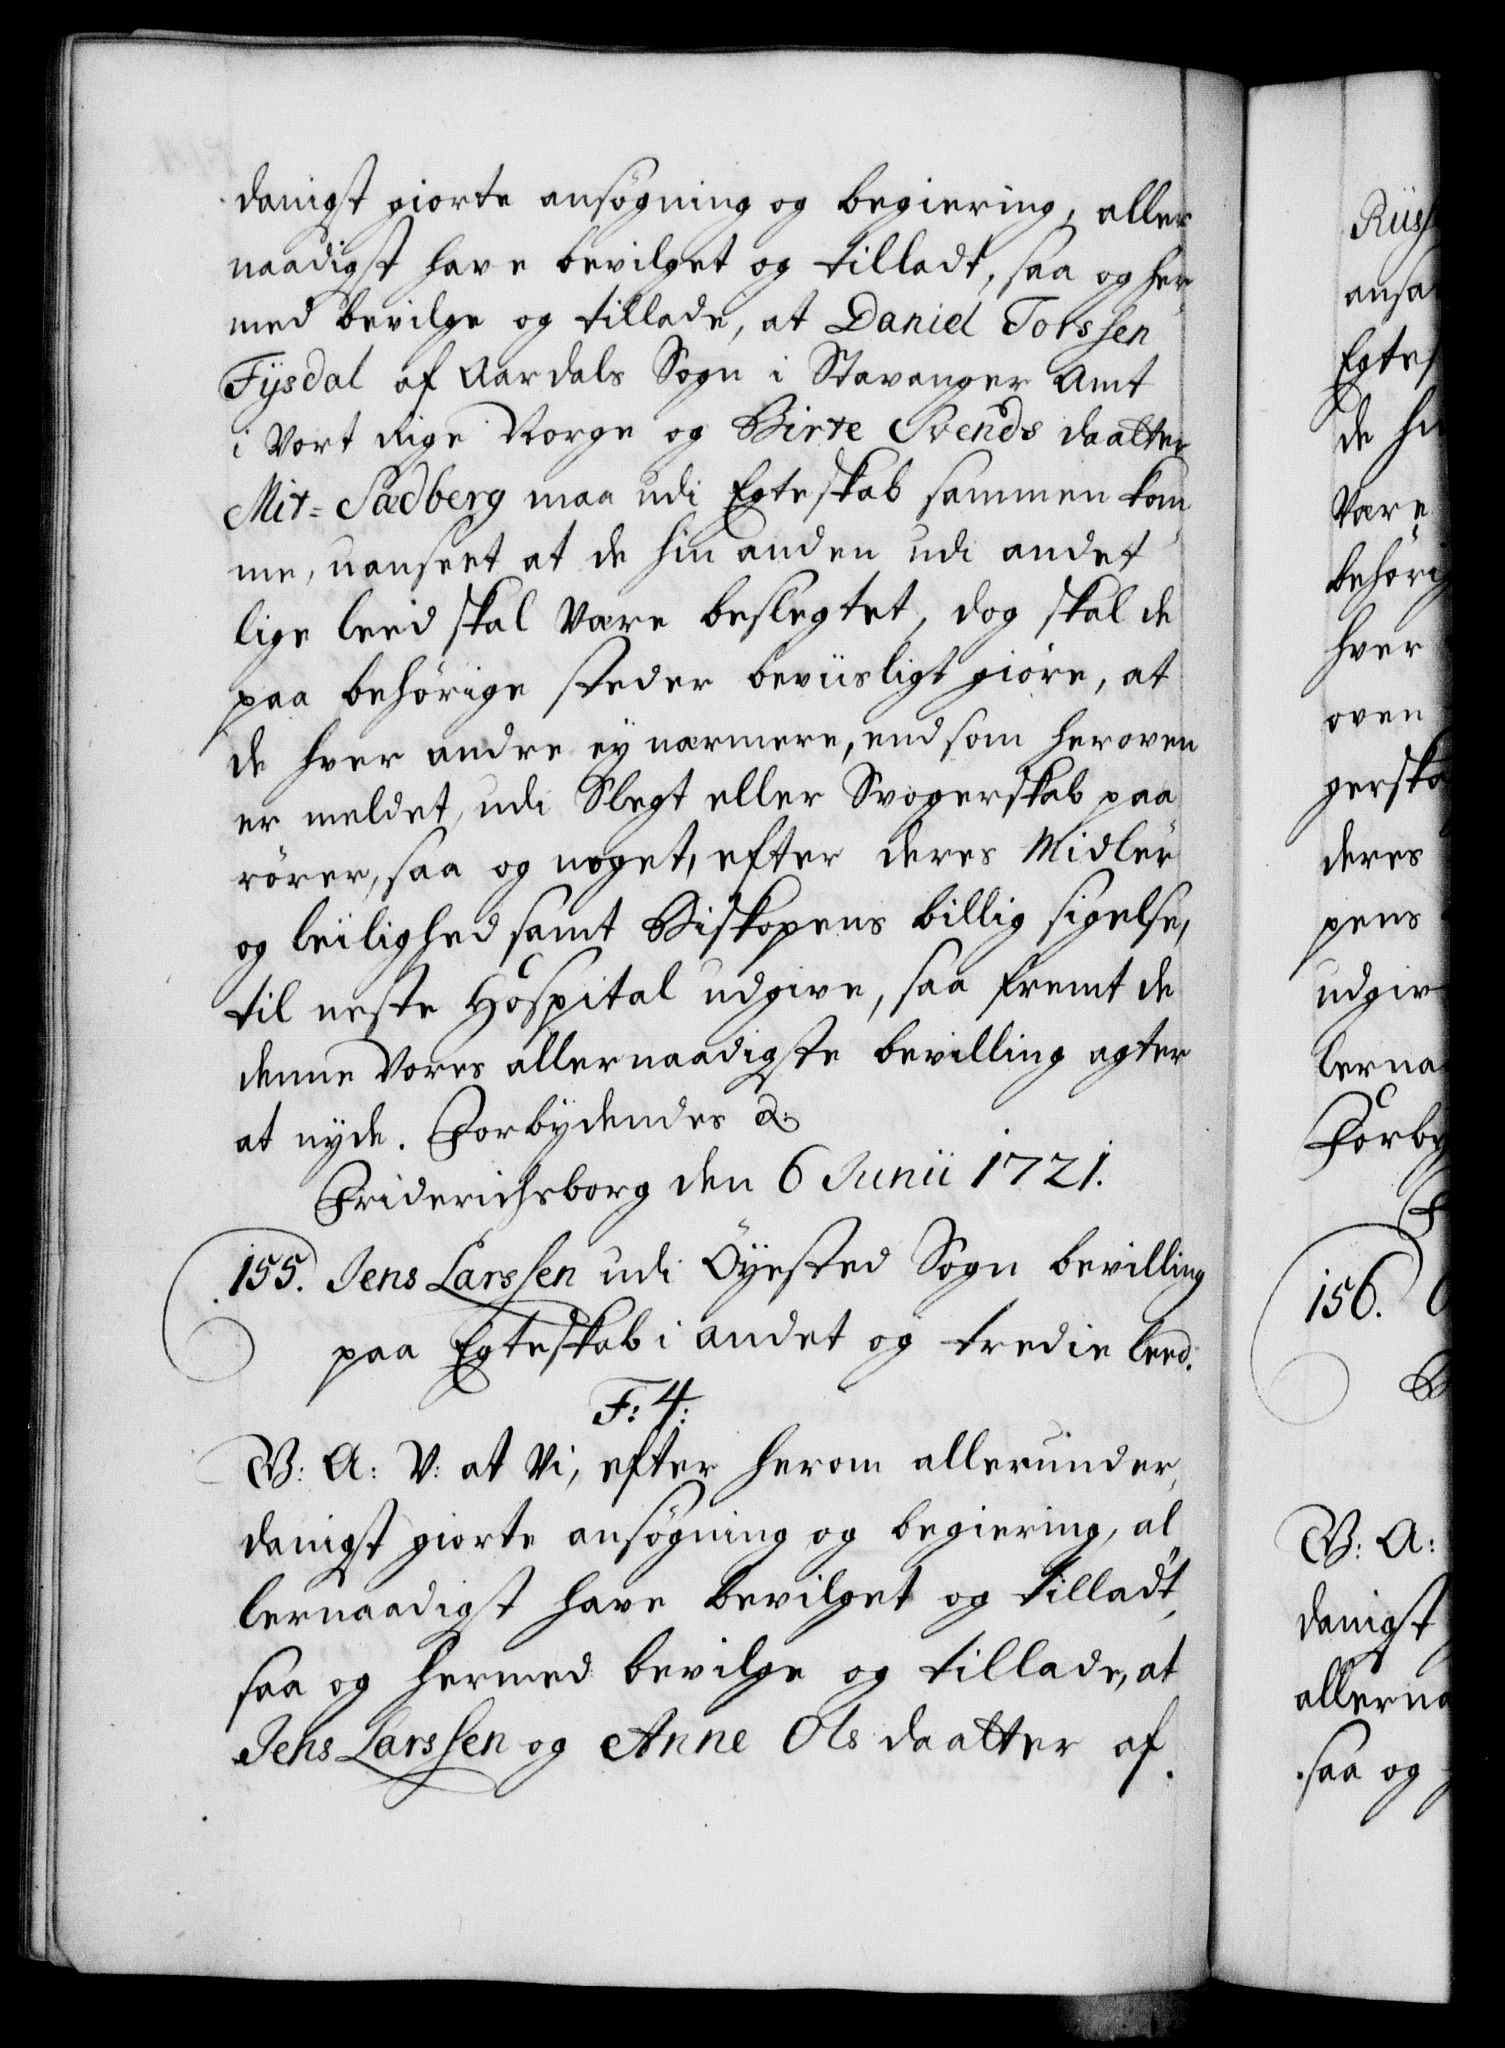 danigst giorte ansøgning og begiering, aller
naadigst have bevilget og tilladt, saa og her,,
med bevilge og tillade, at Daniel Torssen
Fÿsdal af Aardals Sogn i Stavanger Amt
i Vort Rige Norge og Birte Svends daatter
Mit=Sædberg maa udi Egteskab sammen kom,,
me, uanseet at de hin anden udi andet
lige leed skal være beslegtet, dog skal de
paa behørige steder beviisligt giøre, at
de hver andre ey nærmere, end som heroven
er meldet, udi Slegt eller Svogerskab paa
rører, saa og noget, efter deres Midler
og leilighed samt Biskopens billig sigelse,
til neste Hospital udgive, saa fremt de
denne Vores allernaadigste bevilling agter
at nyde. Forbydendes &:
Friderichsborg den 6 Junii 1721.
155. Jens Larssen udi Öyested Sogn bevilling
paa Egteskab i andet og tredie leed.
F: 4:
W: A: V: at Vi, efter herom allerunder,
danigst giorte ansøgning og begiering, al,,
lernaadigst have bevilget og tilladt,
saa og hermed bevilge og tillade, at
Jens Larssen og Anne Ols daatter af
Rüss
ansa
Egtes
de hi
være
behørig
hver
oven
gerska
deres
pens
udgiv
lerna
Forby
F
156.
W: A:
danigst
allerna
saa og